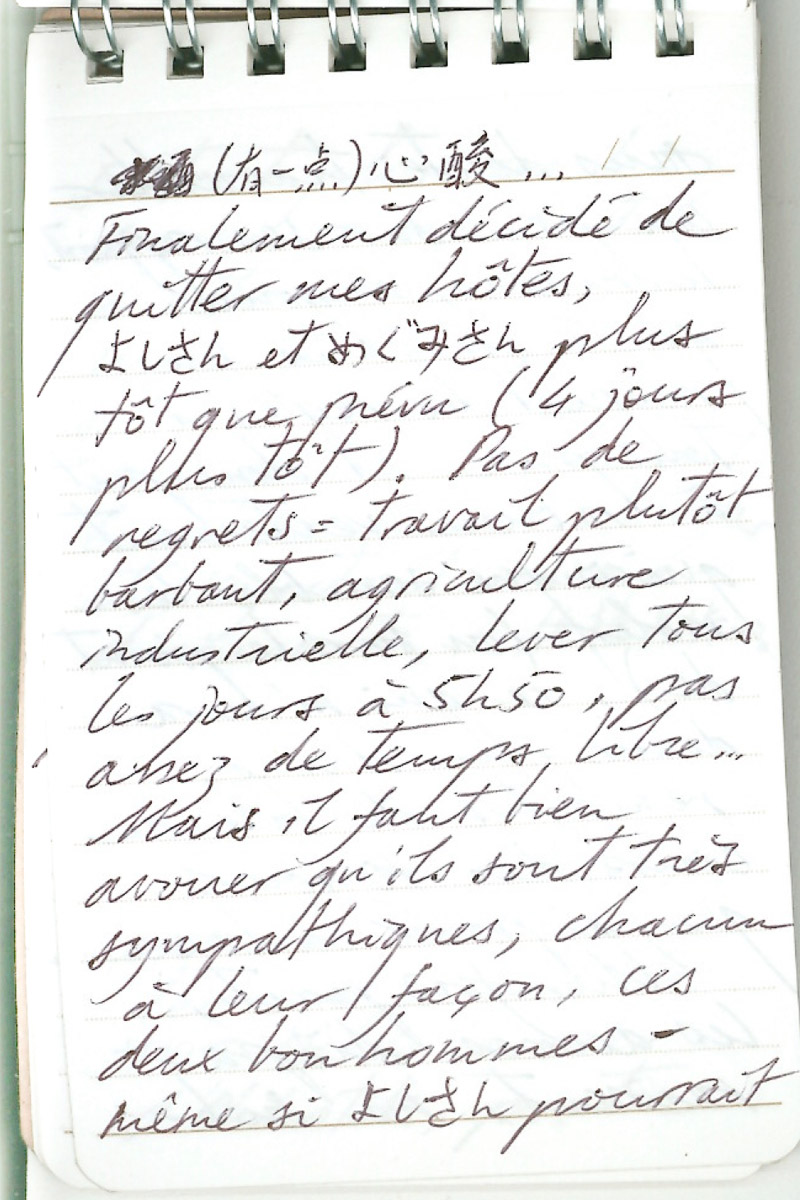 (有一点)心酸...
Finalement décidé de
quitter mes hôtes,
よしさん et めぐみさん plus
tôt que prévu (4 jours
plus tôt). Pas de
regrets = travail plutôt
barbant, agriculture
industrielle, lever tous
les jours à 5h50, pas
assez de temps libre...
Mais il faut bien
avouer qu'ils sont très
sympathiques, chacun
à leur façon, ces
deux bonhommes -
même si よしさん pourrait